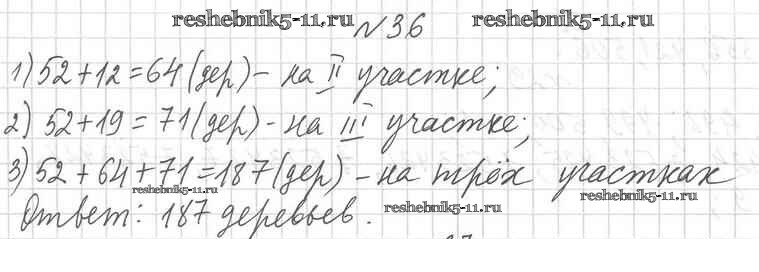 reshebnik5-11.ru №36 reshebnik5-11.ru
1) 52+12=64 (дер) - на II участке;
2) 52+19=71 (дер) - на III участке;
3) 52+64+71=187 (дер) - на трёх участках
reshebnik5-11.ru reshebnik5-11.ru
Ответ: 187 деревьев. reshebnik5-11.ru